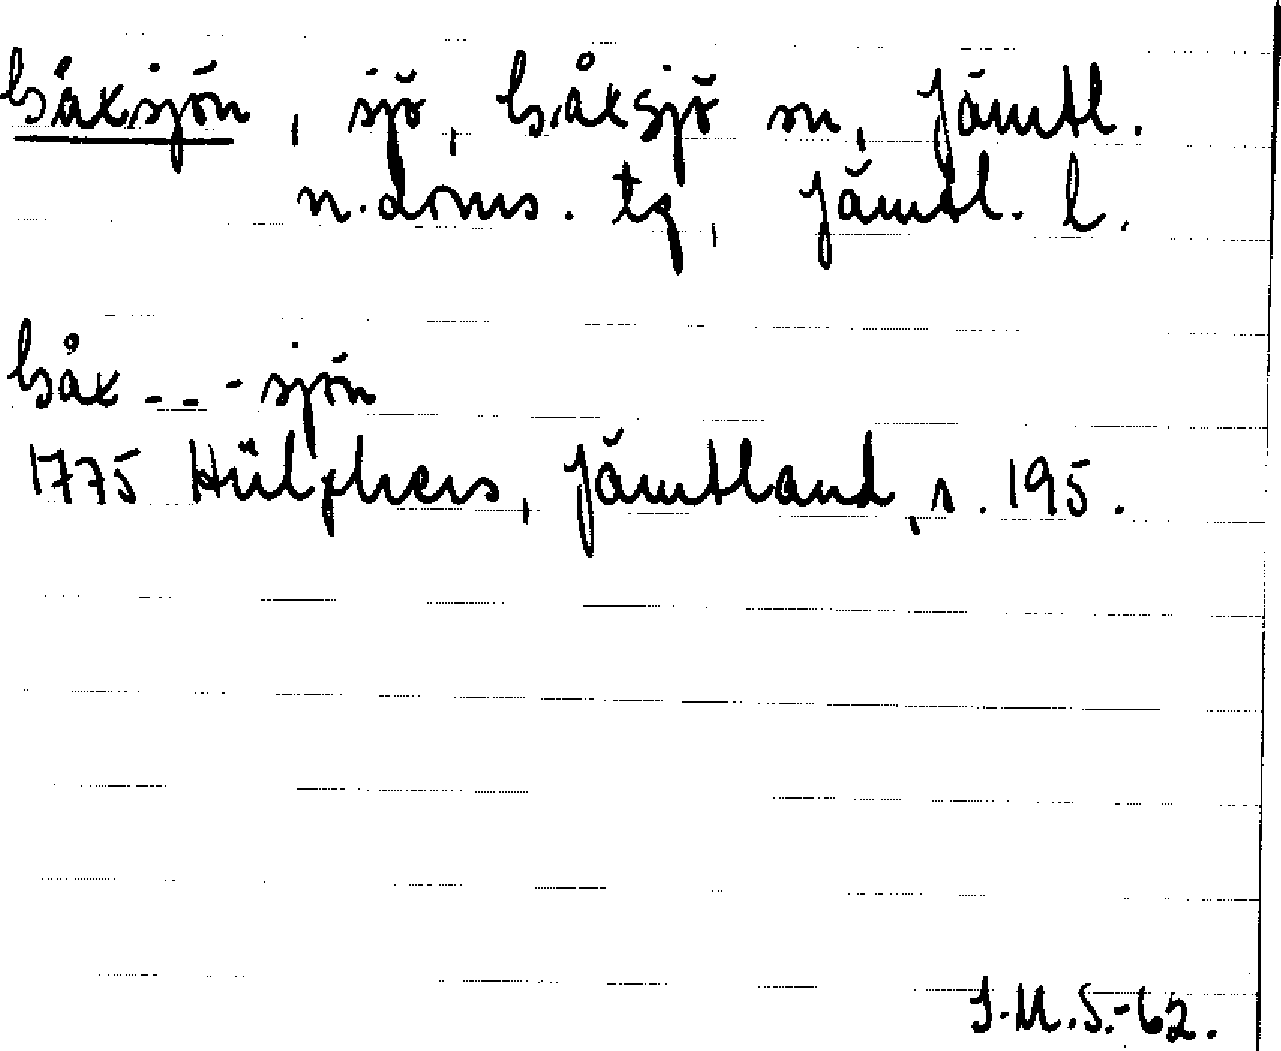 Håxsjön, sjö, Håxsjö sn, Jämtl.
n. doms. tg, Jämtl. l.
Håx - - - sjön
1775 Hülphers, Jämtland, s. 195.
I.M.S.-62.